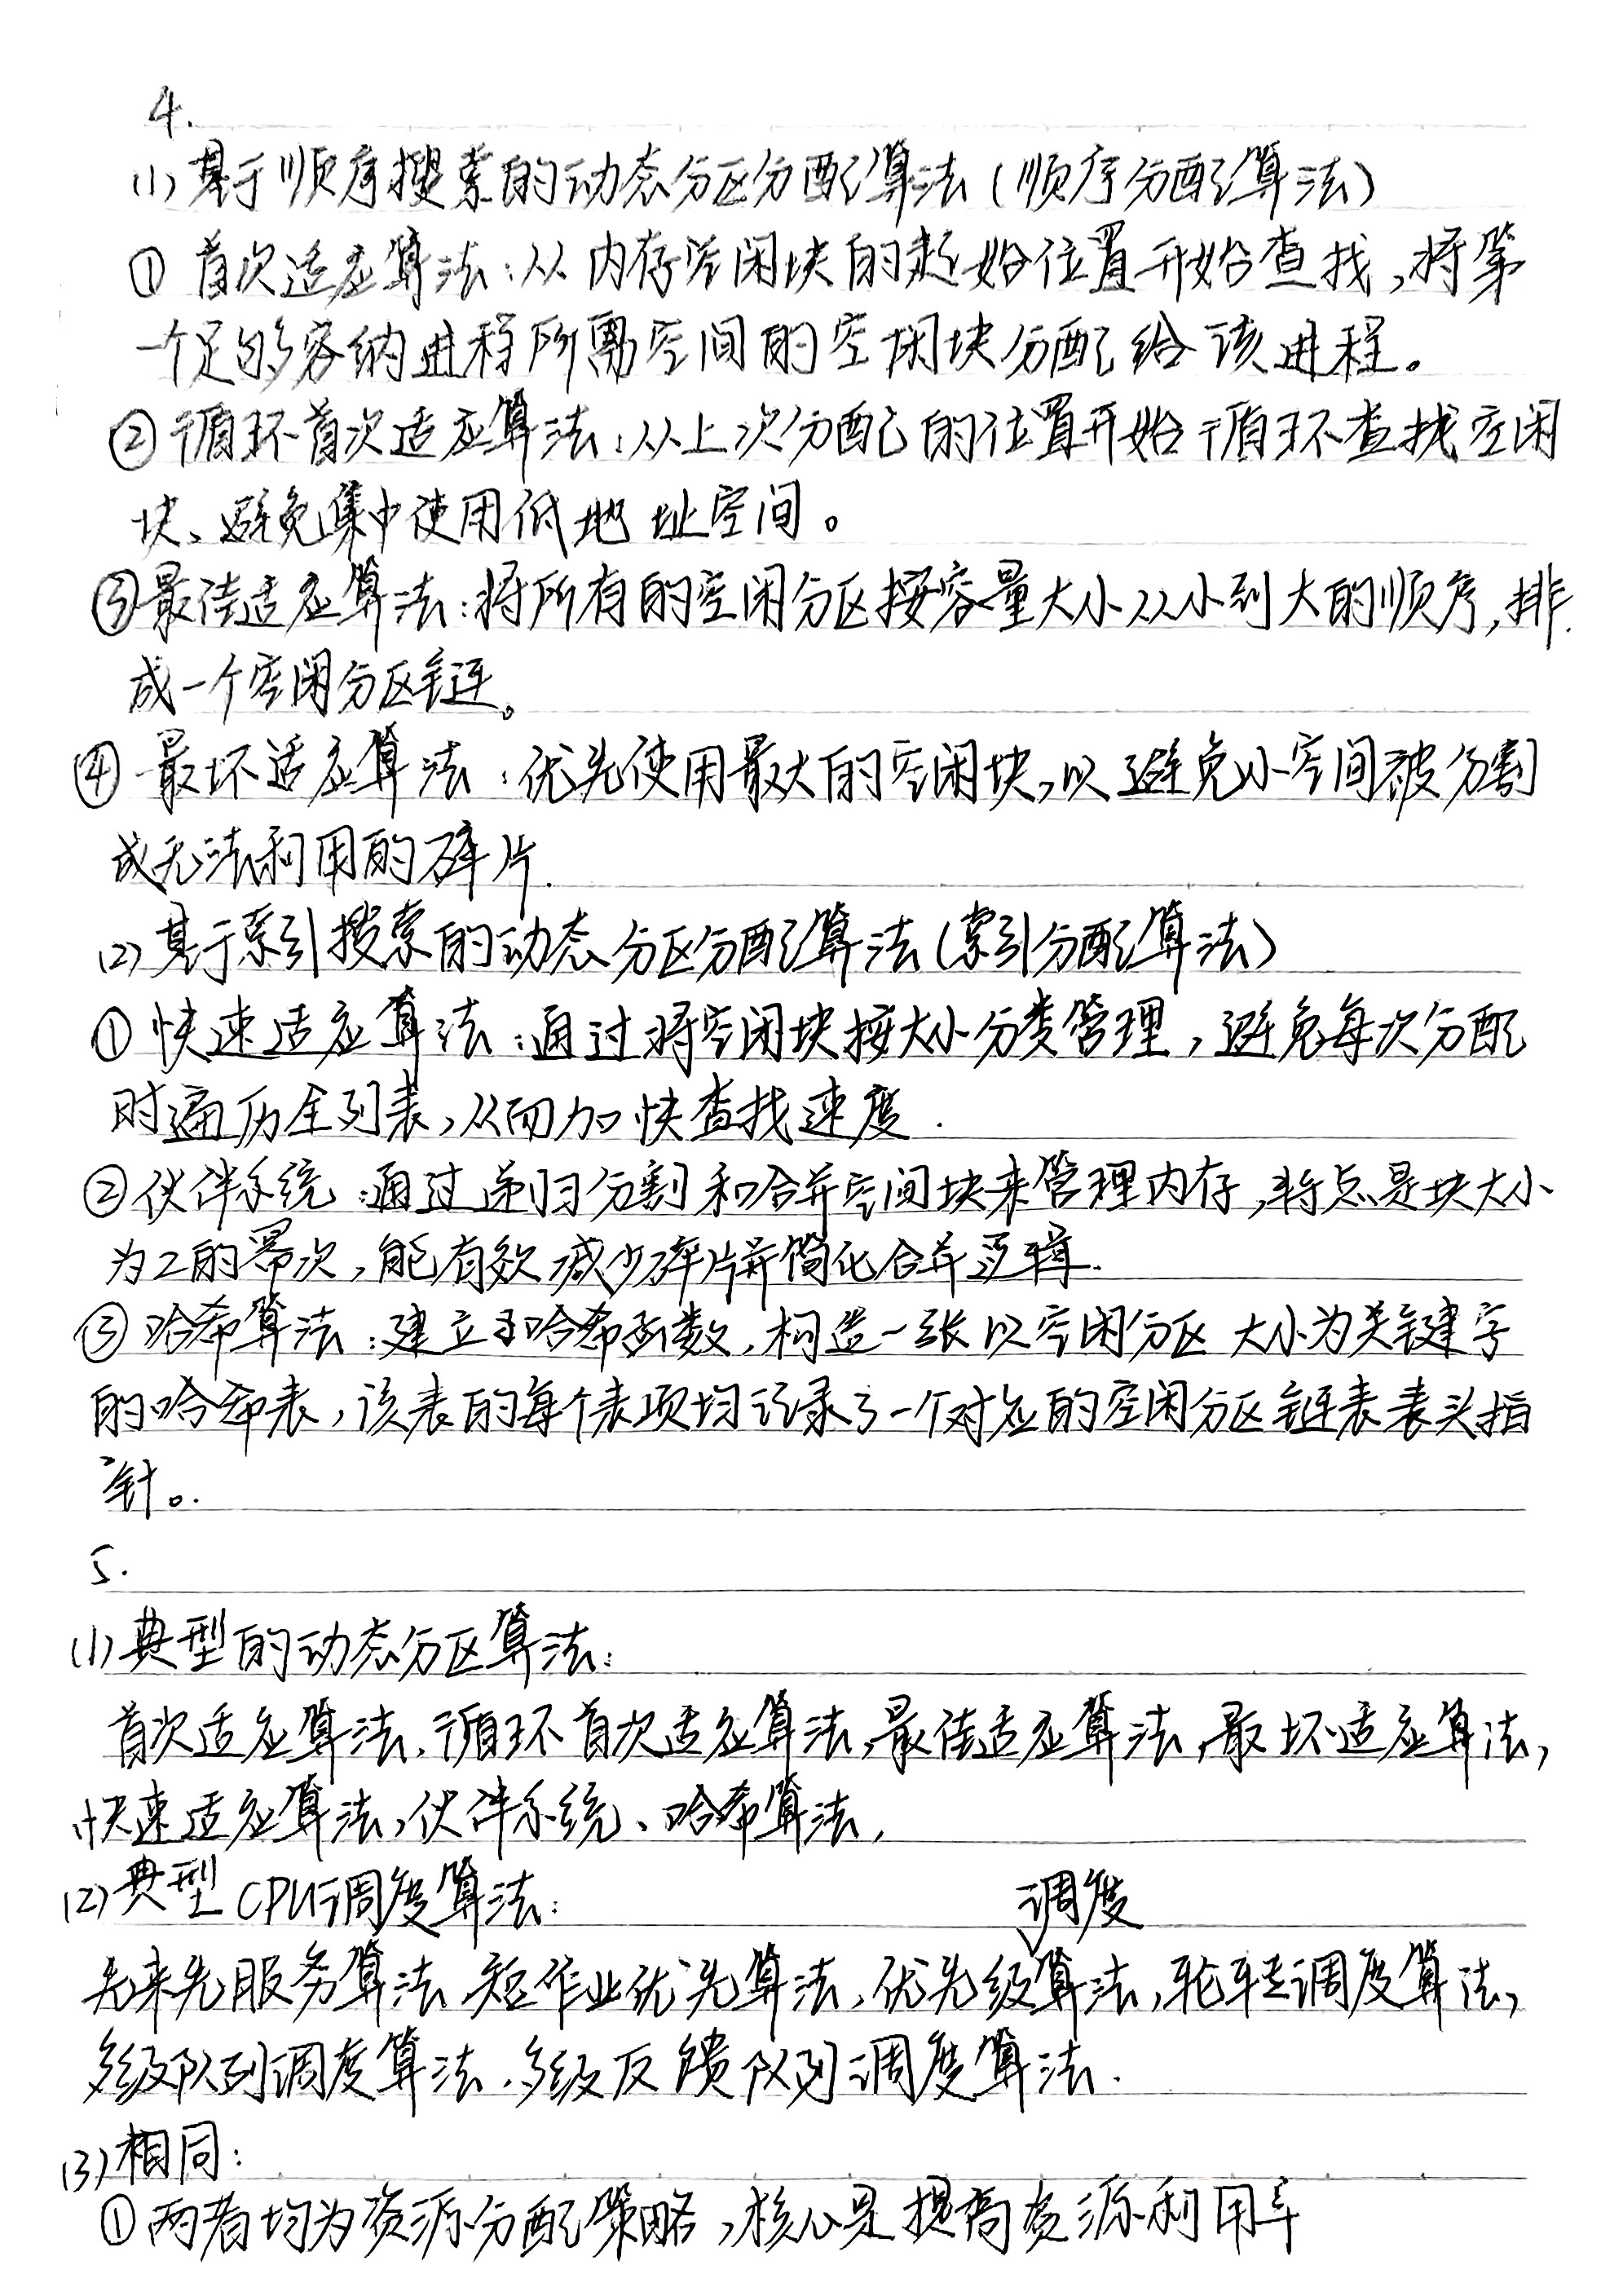 4.
(1) 基于顺序搜索的动态分区分配算法(顺序分配算法)
① 首次适应算法:从内存空闲块的起始位置开始查找,将第
一个足够容纳进程所需空间的空闲块分配给该进程。
② 循环首次适应算法:从上次分配的位置开始循环查找空闲
块、避免集中使用低地址空间。
③ 最佳适应算法:将所有的空闲分区按容量大小从小到大的顺序,排
成一个空闲分区链。
④ 最坏适应算法:优先使用最大的空闲块,以避免小空间被分割
成无法利用的碎片.
(2) 基于索引搜索的动态分区分配算法(索引分配算法)
① 快速适应算法:通过将空闲块按大小分类管理,避免每次分配
时遍历全列表,从而加快查找速度.
② 伙伴系统:通过递归分割和合并空间块来管理内存,特点是块大小
为2的幂次,能有效减少碎片并简化合并逻辑.
③ 哈希算法:建立哈希函数,构造一张以空闲分区大小为关键字
的哈希表,该表的每个表项均记录了一个对应的空闲分区链表表头指
针。
5.
(1) 典型的动态分区算法:
首次适应算法、循环首次适应算法,最佳适应算法,最坏适应算法,
快速适应算法,伙伴系统、哈希算法,
(2) 典型CPU调度算法:
调度
先来先服务算法、短作业优先算法、优先级算法,轮转调度算法,
多级队列调度算法、多级反馈队列调度算法.
(3) 相同:
① 两者均为资源分配策略,核心是提高资源利用率